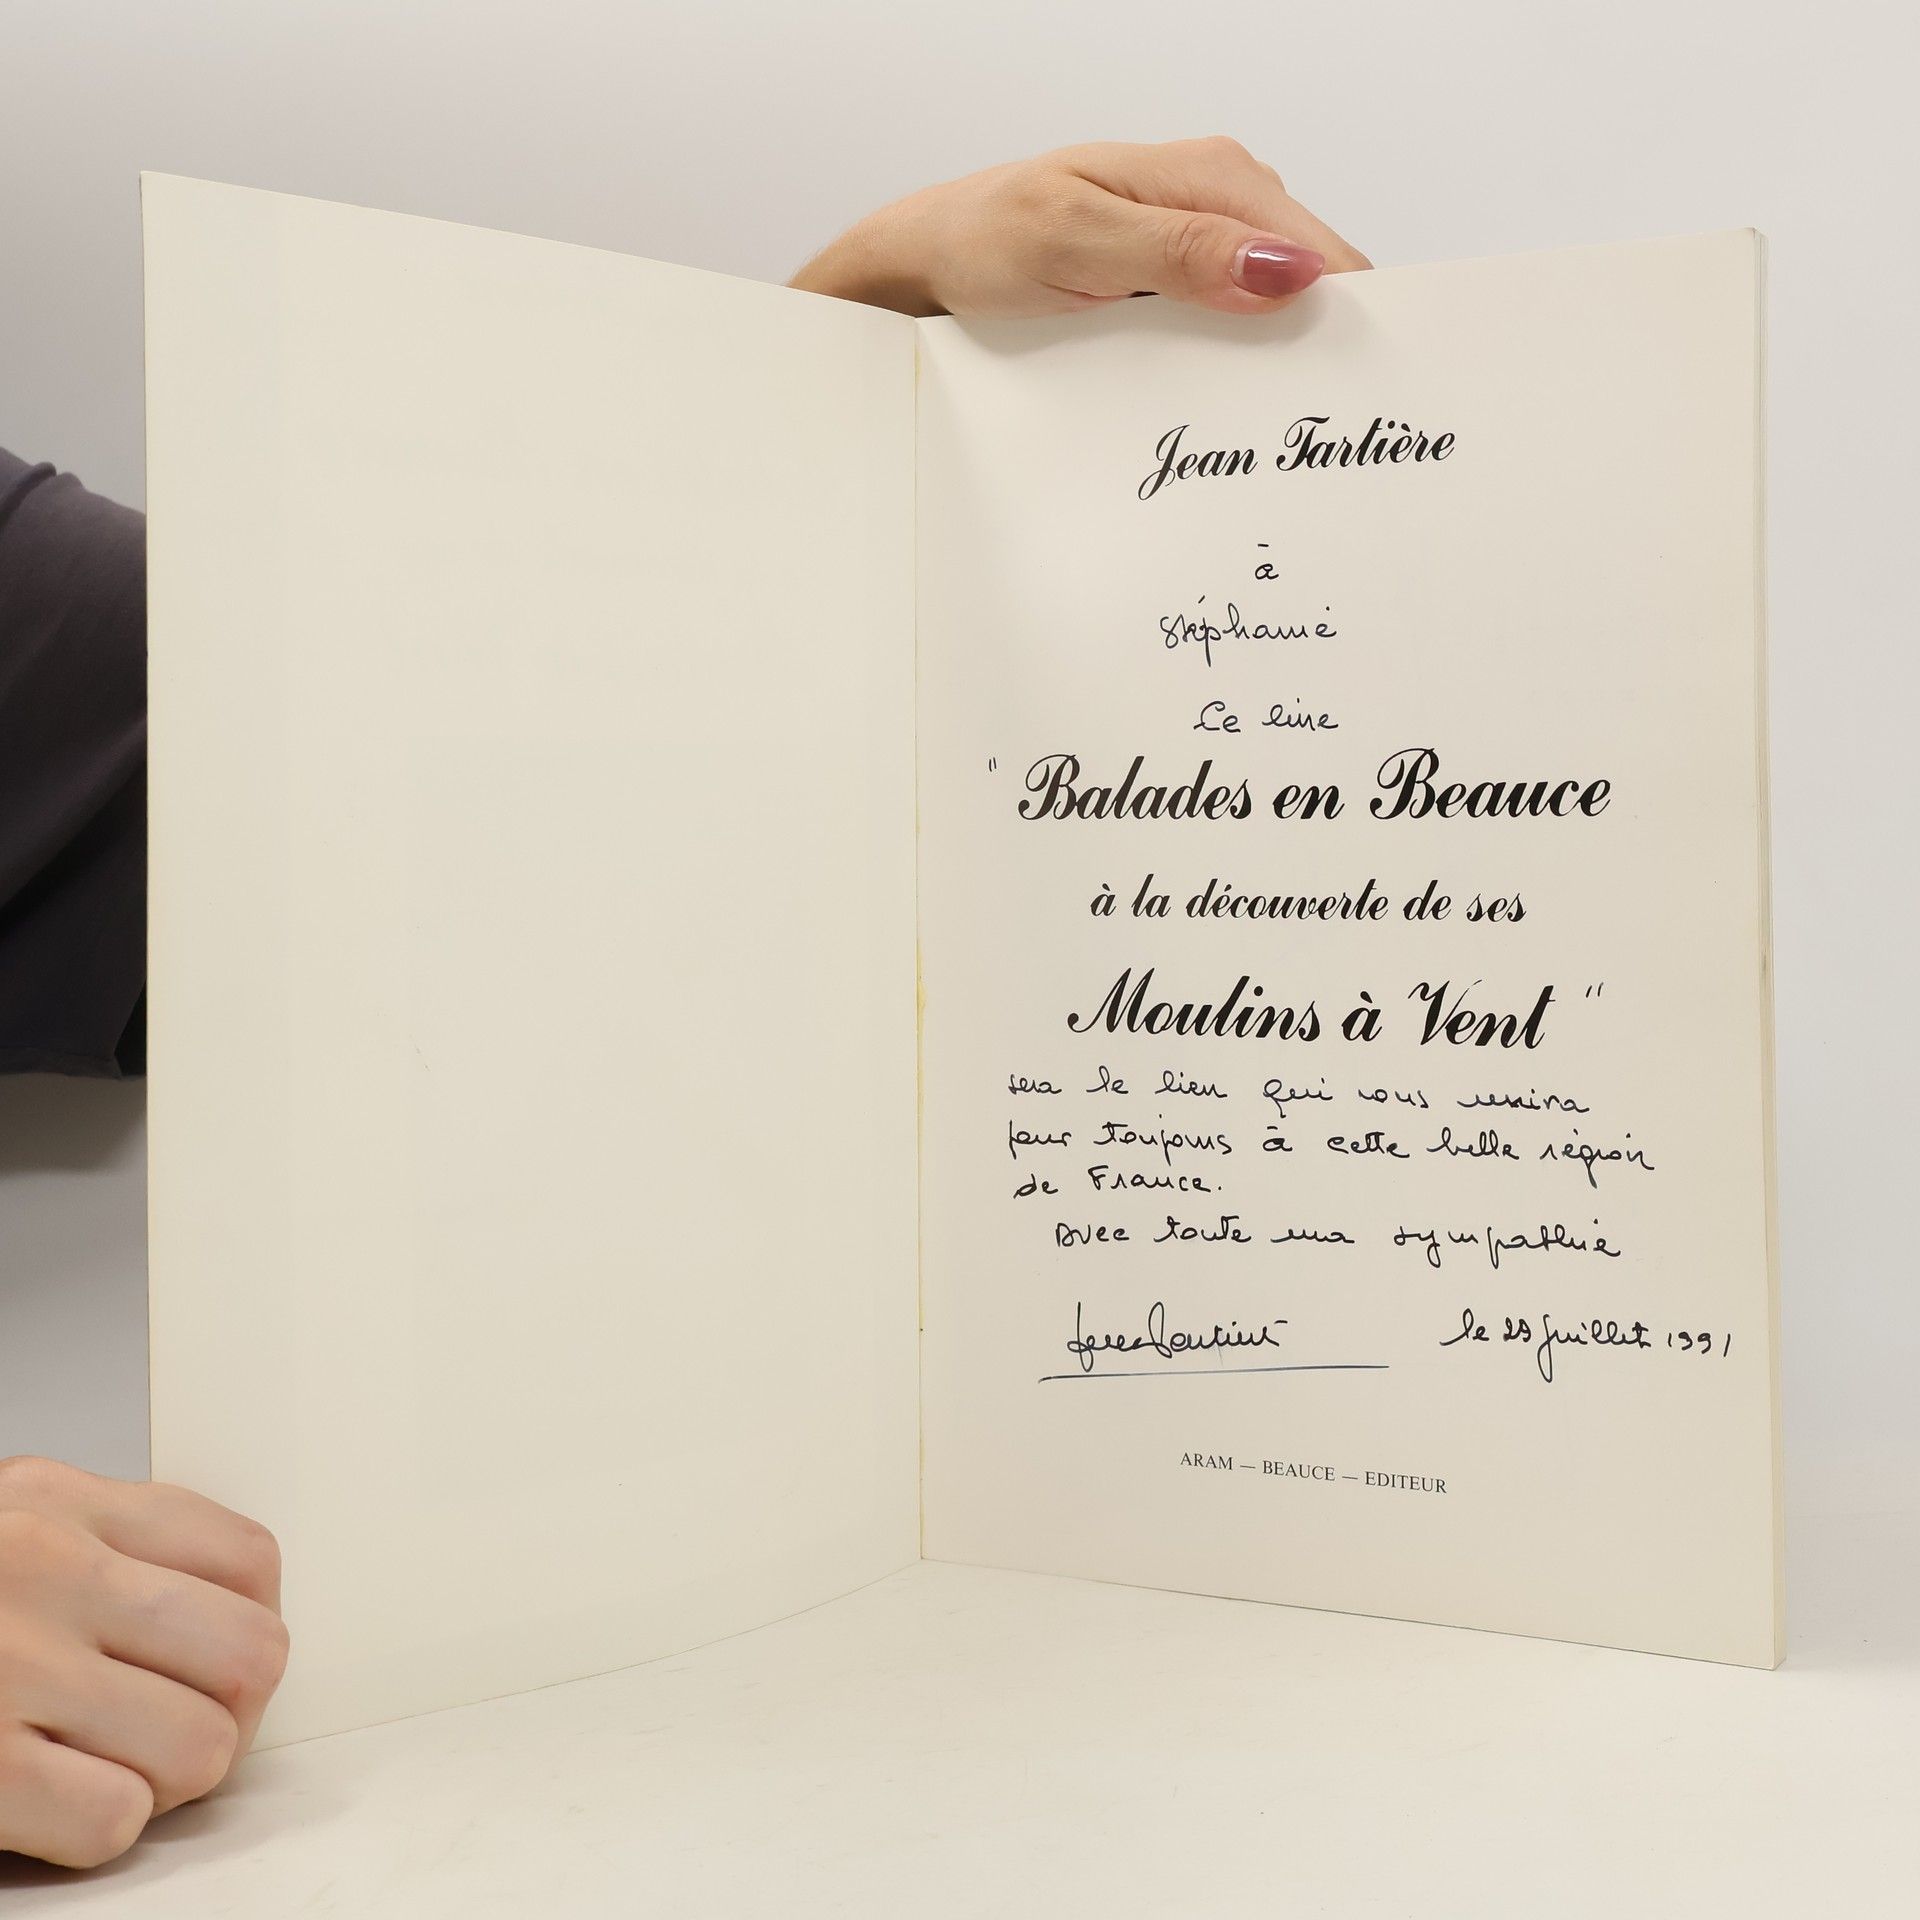 Jean Tartière
à
Stéphanie
Ce livre
" Balades en Beauce
à la découverte de ses
Moulins à Vent "
sera le lien qui vous unira
pour toujours à cette belle région
de France.
Avec toute ma sympathie
le 29 Juillet 1991
ARAM — BEAUCE — EDITEUR